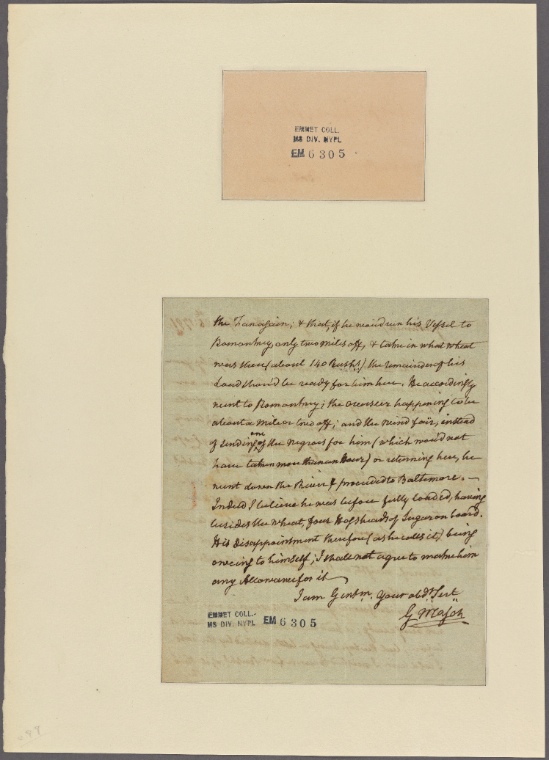 EMMET COLL.
MS DIV. NYPL
EM 6305
the ; & that, if he wou'd run his Vessel to
only two miles off, & take in what wheat
was there (about 140 Bushs) the remainder of his
Load shou'd be ready for him here. He accordingly
went to ; the overseer happening to be
about a mile or two off; and the wind fair, instead
of sending one of the Negroes for him (which would not
have taken more than an Hour) or returning here, he
went down the River & proceeded to Baltimore. —
Indeed I believe he was before fully loaded, having
besides the wheat, four Hogsheads of Sugar on board.
His disappointment therefore (as he calls it) being
owing to himself, I shall not agree to make him
any Allowance for it —
I am Gentm. Your obdt. Servt
G Mason
EMMET COLL.
MS DIV. NYPL EM 6305